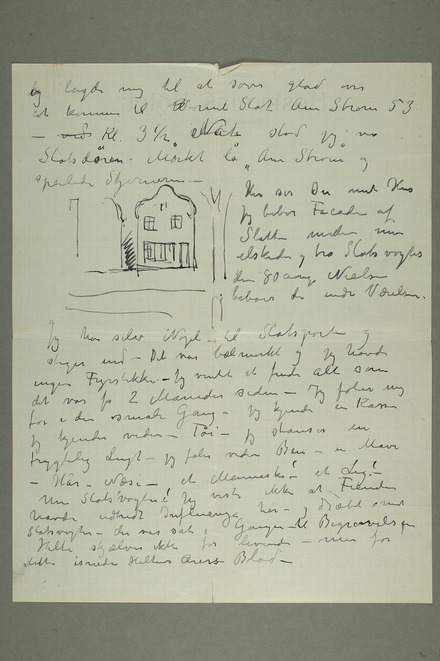 og lagde mig til at sove glad over
at komme til mit Slot Am Strom 53
– Kl. 3 1/2 Nat stod jeg ved
Slotsdøren. Mørkt lå "Am Strom" og
spejlede Stjernerne –
Her ser Du mit Hus
jeg bebor Facaden af
Slottet medens min
elskede og tro Slotsvogter
den 80 aarige Nielsen
beboer de indre Værelser.
Jeg har selv Nøgle til Slotsporten og
steger ind – Det var bælmørkt og jeg havde
ingen Fyrstikker – Jeg vented at finde alt som
det var for 2 Maaneder siden – Jeg føler mig
for i den smalle Gang – jeg kjender en Kasse
jeg kjender videre – Tøi – jeg standser en
frygtelig Lugt – jeg føler videre Ben – en Mave
– Hår – Næse – et Menneske! et Lig!
Min Slotsvogter! Jeg viste ikke at Fienden
havde udbredt Influenza her – og dræbt min
Slotsvogter – der var sat i Gangen til Begravelsen
Helte skjælver ikke for levende – men for
dette isnede Heltens Blod –